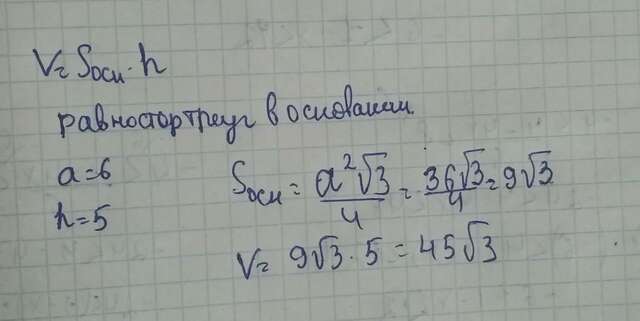 V = Sосн · h
равностор треуг в основании.
a=6
h=5
Sосн = a²√3/4 = 36√3/4 = 9√3
V = 9√3 · 5 = 45√3